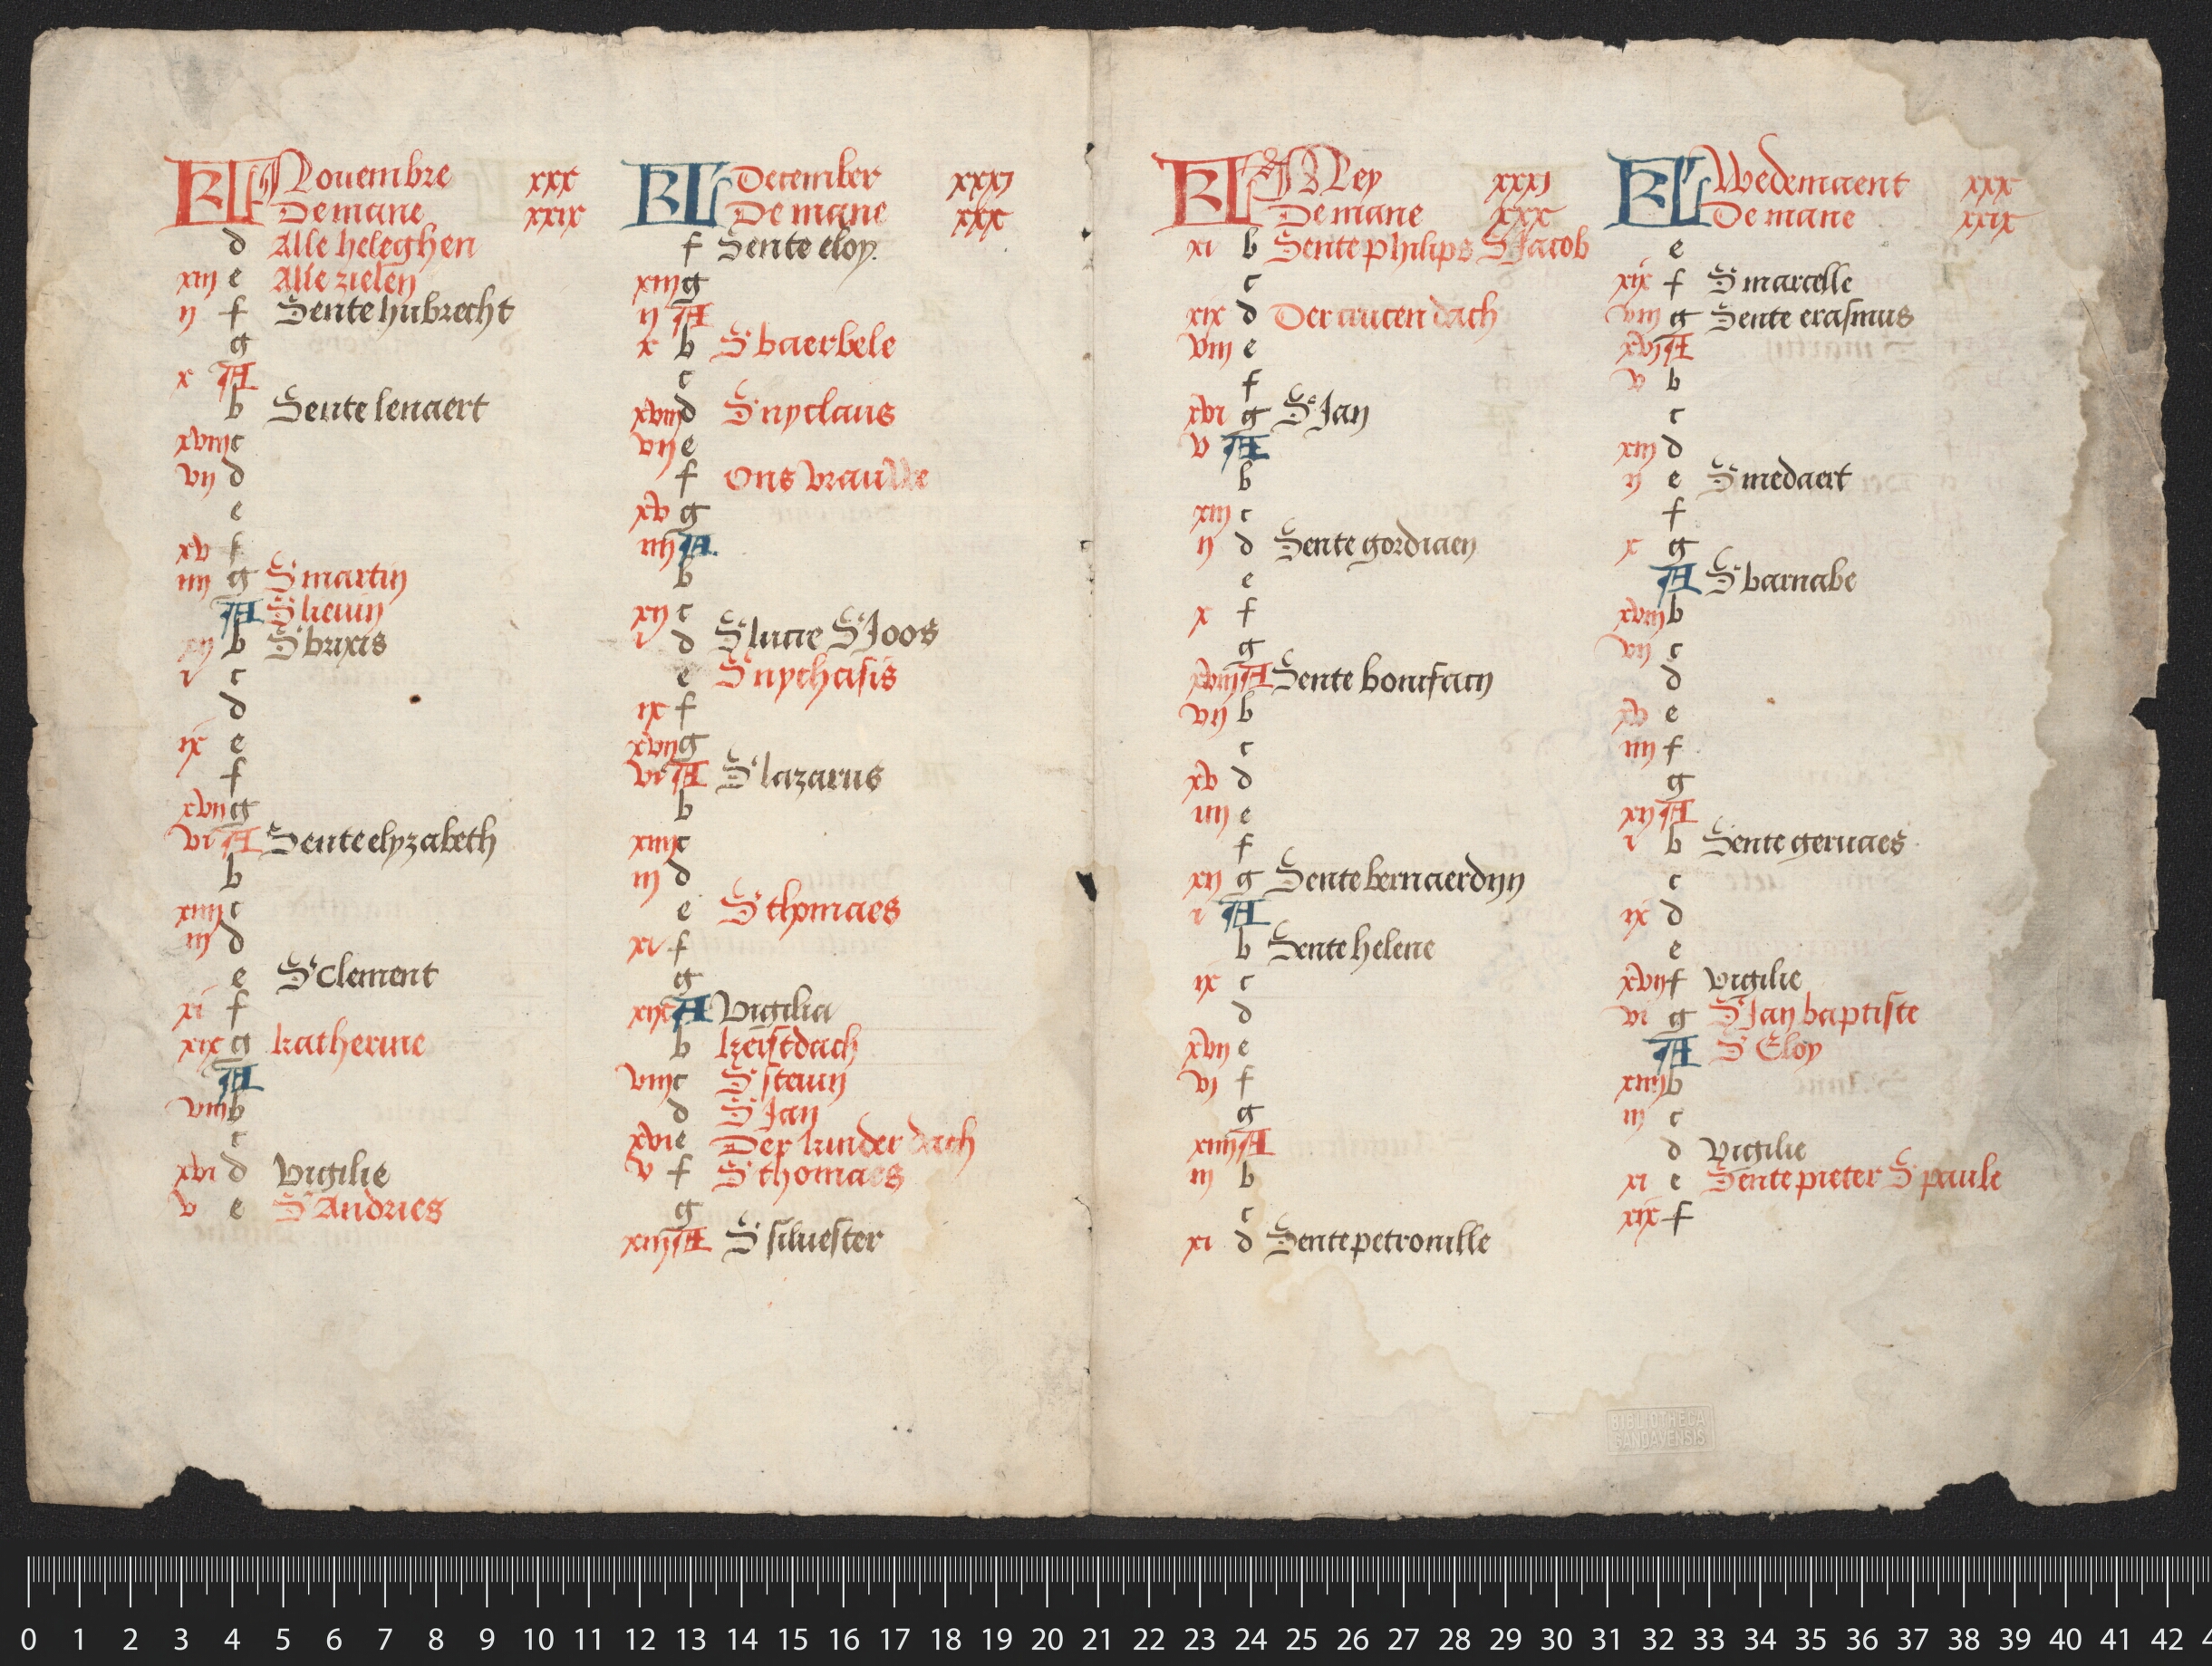 KL Nouembre xxx
De mane xxix
d Alle heleghen
xiij e Alle zielen
ij f Sente hubrecht
g
x A
b Sente lenaert
xviij c
vij d
e
xv f
iiij g S martin
A S lieuin
xij b S brixis
i c
d
ix e
f
xvij g
vi A Sente elyzabeth
b
xiiij c
iij d
e S Clement
xi f
xix g katherine
A
viij b
c
xvi d vigilie
v e S Andries
KL December xxxj
De mane xxx
f Sente eloy.
xiij g
ij A
x b S baerbele
c
xviij d S nyclaus
vij e
f Ons vrauwe
xv g
iiij A
b
xij c
i d S lucie S Joos
e S nychasis
ix f
xvij g
vi A S lazarus
b
xiiij c
iij d
e S thomaes
xi f
g
xix A vigilia
b kerstdach
viij c S steuin
d S Jan
xvi e Der kinder dach
v f S thomaes
g
xiij A S siluester
KL Mey xxxj
De mane xxx
xi b Sente philips S Jacob
c
xix d Der crucen dach
viij e
f
xvi g S Jan
v A
b
xiij c
ij d Sente gordiaen
e
x f
g
xviij A Sente bonifacij
vij b
c
xv d
iiij e
f
xij g Sente bernaerdyn
i A
b Sente helene
ix c
d
xvij e
vj f
g
xiiij A
iij b
c
xi d Sente petronille
KL Wedemaent xxx
De mane xxix
e
xix f S marcelle
viij g Sente erasmus
xvj A
v b
c
xiij d
ij e S medaert
f
x g
A S barnabe
xviij b
vij c
d
xv e
iiij f
g
xij A
i b Sente geruaes
c
ix d
e
xvij f vigilie
vi g S Jan baptiste
A S Eloy
xiiij b
iij c
d vigilie
xi e Sente pieter S paule
xix f
BIBLIOTHECA
GANDAVENSIS
0 1 2 3 4 5 6 7 8 9 10 11 12 13 14 15 16 17 18 19 20 21 22 23 24 25 26 27 28 29 30 31 32 33 34 35 36 37 38 39 40 41 42